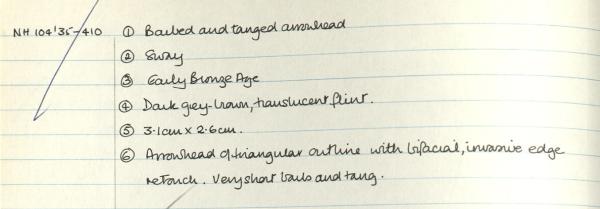 NH 104'35-410 ① Barbed and tanged arrowhead
② Sway
③ Early Bronze Age
④ Dark grey-brown, translucent flint.
⑤ 3.1cm x 2.6cm.
⑥ Arrowhead of triangular outline with bifacial, invasive edge
retouch. Very short barbs and tang.